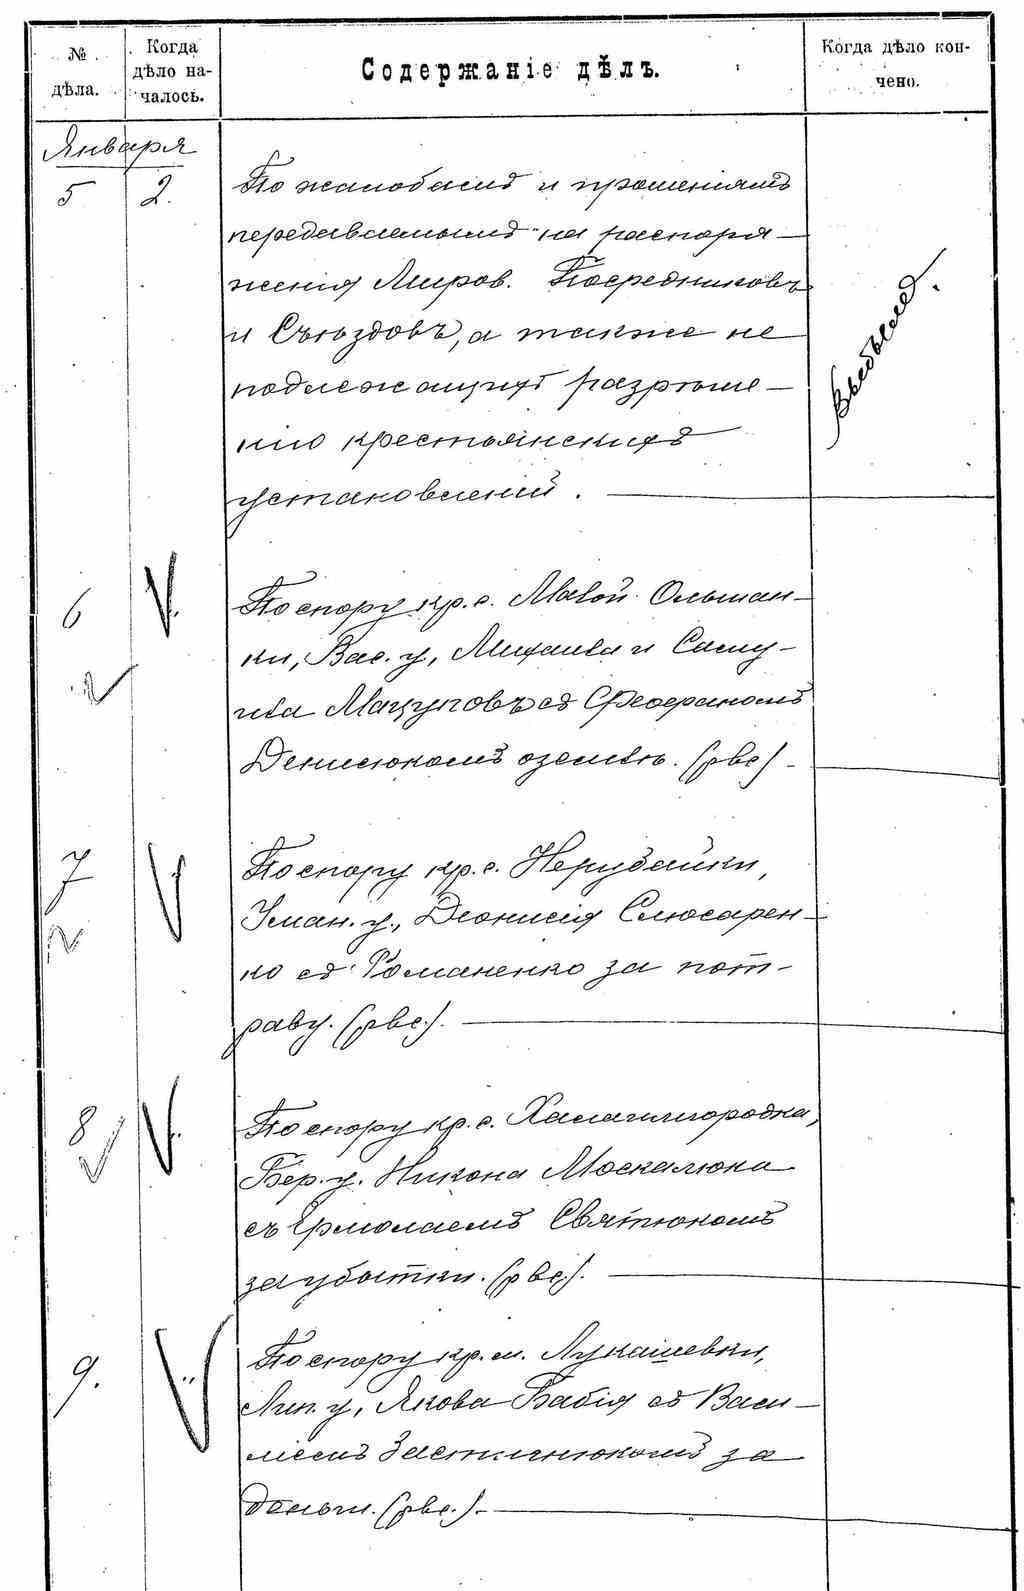 № дѣла.
Когда дѣло на-
чалось.
Содержаніе дѣлъ.
Когда дѣло кон-
чено.
Января
5 2. По жалобамъ и прошеніямъ
передаваемымъ на распоря-
женія Миров. Посредниковъ
и Съѣздовъ, а также не
подлежащихъ разрѣше-
нію крестьянскихъ
установленій.
6 По спору кр. с. Малой Ольшан-
ки, Вас. у., Михаила и Саму-
ила Мацуповъ съ Феофаномъ
Денисюкомъ о землѣ. (рве)
7 По спору кр. с. Нерубайки,
Уман. у., Діонисія Слюсарен-
ко съ Романенко за пот-
раву. (рве.).
8 По спору кр. с. Халаимгородка,
Бер. у. Никона Москалюка
съ Ермолаемъ Святюкомъ
за убытки. (рве).
9. По спору кр. м. Лукашевки,
Лип. у., Якова Бабія съ Васи-
ліемъ за
деньги. (рве.).